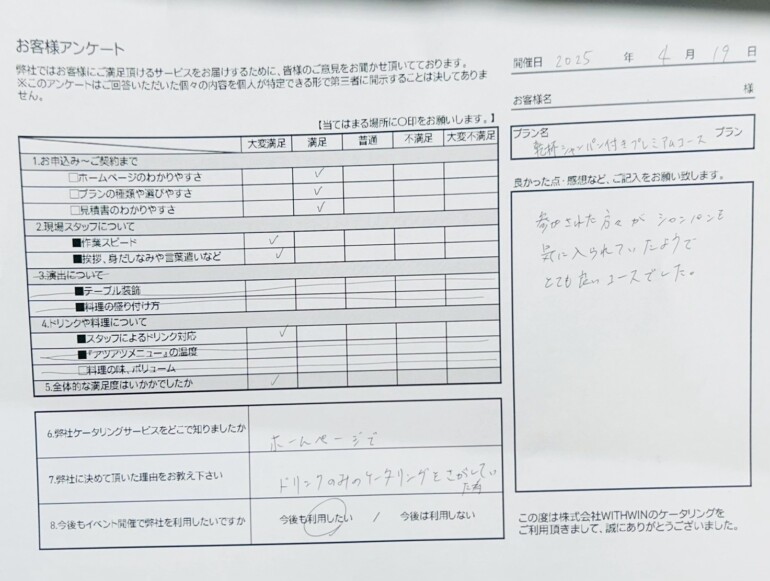 お客様アンケート
弊社ではお客様にご満足頂けるサービスをお届けするために、皆様のご意見をお聞かせ頂いております。
※このアンケートはご回答いただいた個々の内容を個人が特定できる形で第三者に開示することは決してありま
せん。
【当てはまる場所に〇印をお願いします。】
大変満足 満足 普通 不満足 大変不満足
1.お申込み～ご契約まで
□ホームページのわかりやすさ ✓
□プランの種類や選びやすさ ✓
□見積書のわかりやすさ ✓
2.現場スタッフについて
■作業スピード ✓
■挨拶、身だしなみや言葉遣いなど ✓
3.演出について
■テーブル装飾
■料理の盛り付け方
4.ドリンクや料理について
■スタッフによるドリンク対応 ✓
■『アツアツメニュー』の温度
□料理の味、ボリューム
5.全体的な満足度はいかがでしたか ✓
6.弊社ケータリングサービスをどこで知りましたか
ホームページで
7.弊社に決めて頂いた理由をお教え下さい
ドリンクのみのケータリングをさがしてい
た為
8.今後もイベント開催で弊社を利用したいですか
今後も利用したい / 今後は利用しない
開催日 2025 年 4 月 19 日
お客様名 様
プラン名
乾杯シャンパン付きプレミアムコース プラン
良かった点・感想など、ご記入をお願い致します。
参加された方々が シャンパンを
気に入られていたようで
とても良いコースでした。
この度は株式会社WITHWINのケータリングを
ご利用頂きまして、誠にありがとうございました。